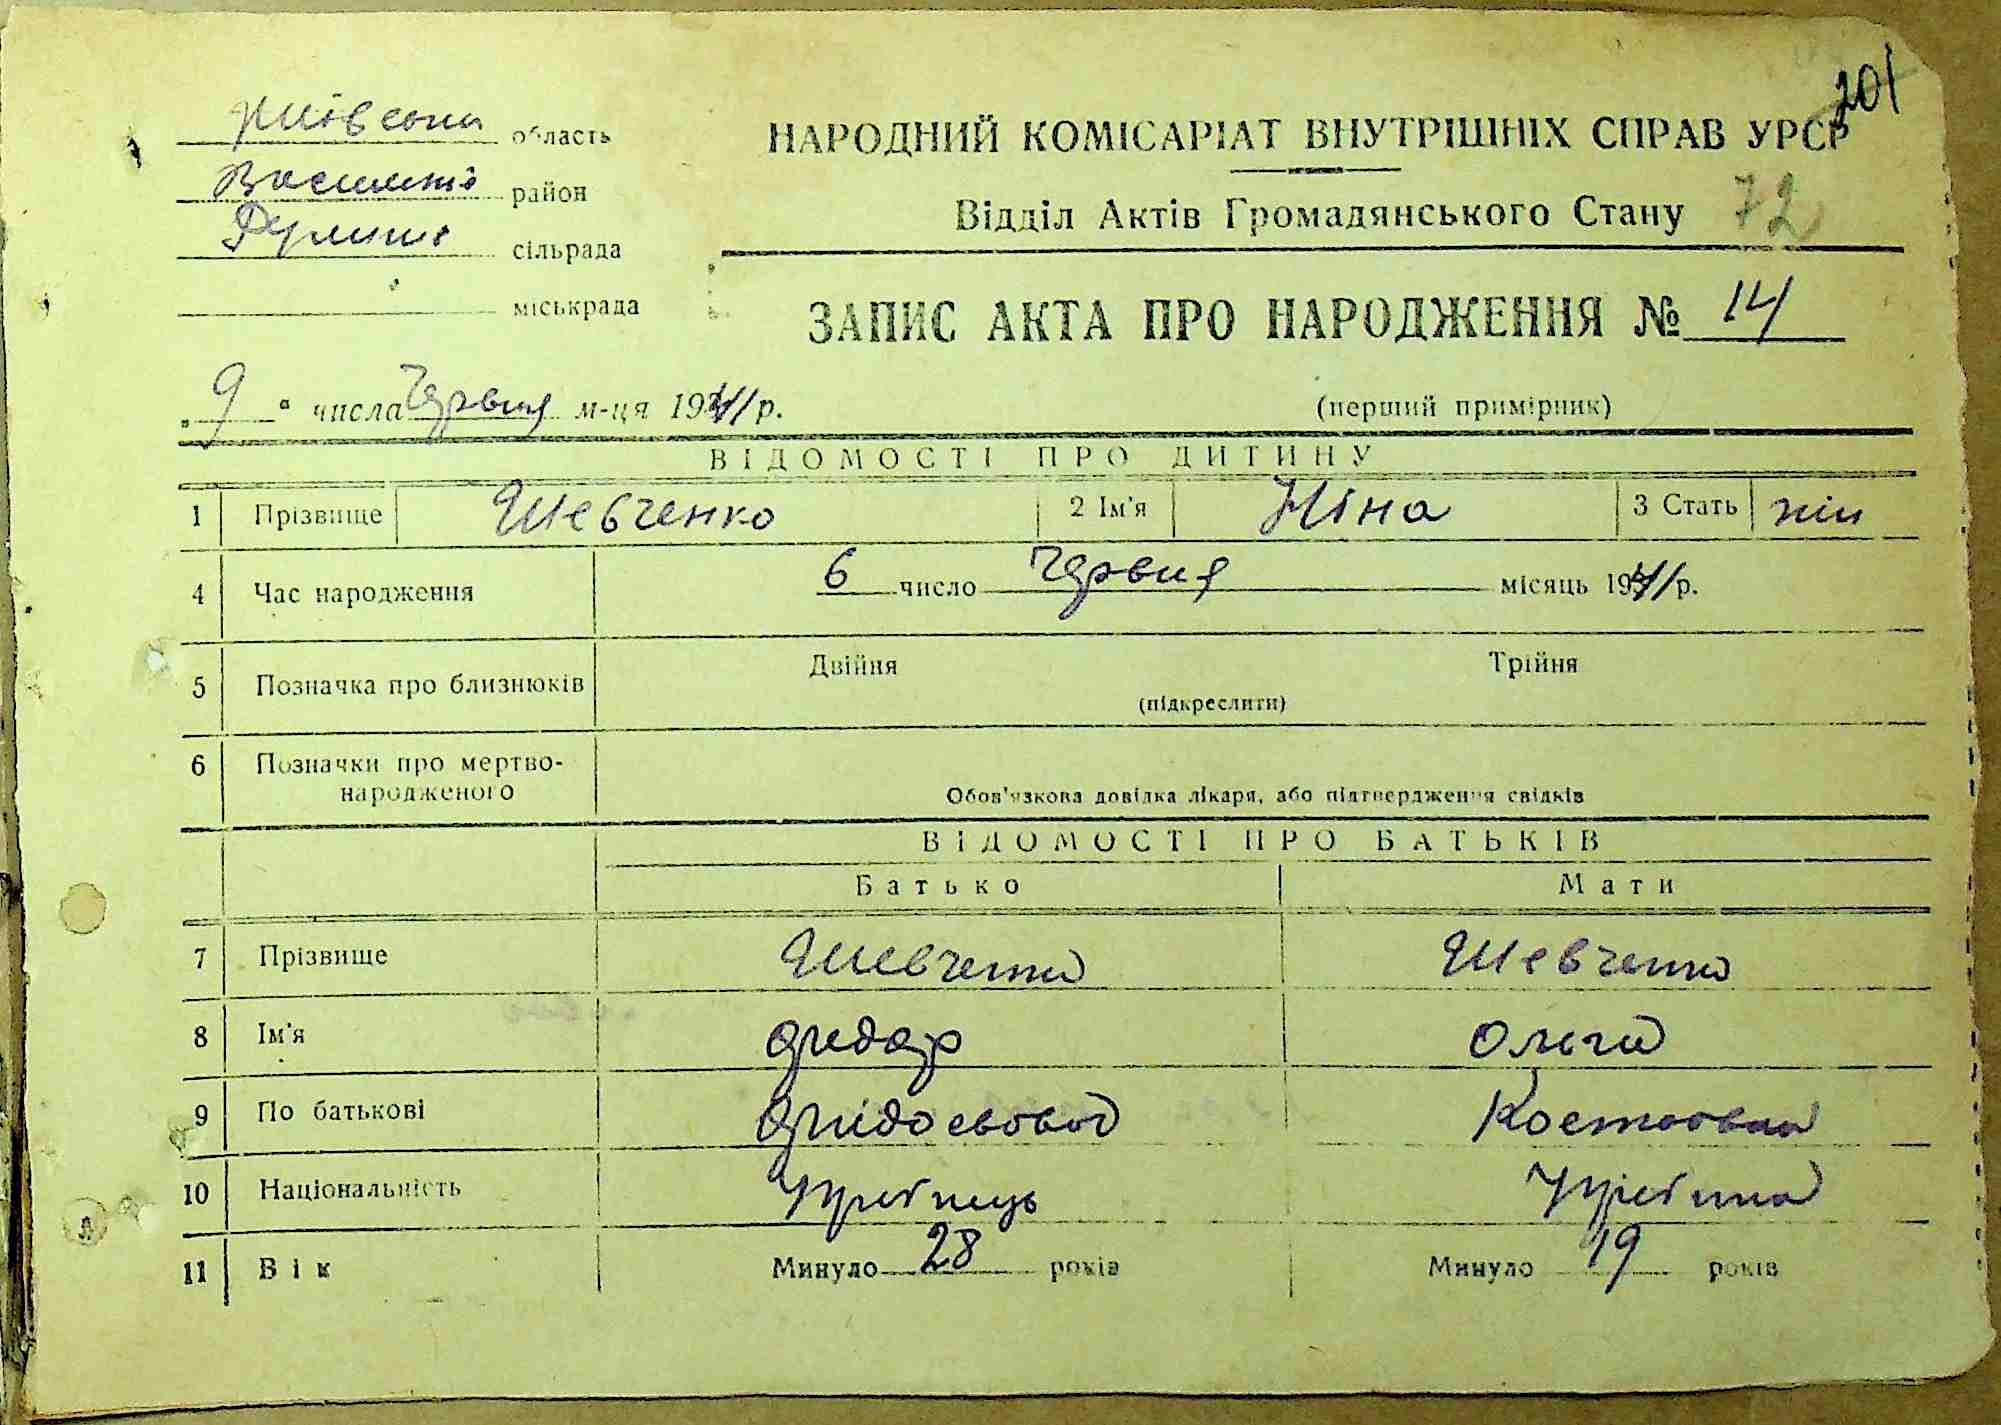 201
Київська область
НАРОДНИЙ КОМІСАРІАТ ВНУТРІШНІХ СПРАВ УРСР
район
Відділ Актів Громадянського Стану 72
сільрада
міськрада
ЗАПИС АКТА ПРО НАРОДЖЕННЯ № 14
„ 9 " числа Червня м-ця 1941 р.
(перший примірник)
ВІДОМОСТІ ПРО ДИТИНУ
1 Прізвище Шевченко 2 Ім'я Ніна 3 Стать жін
4 Час народження 6 число Червня місяць 1941 р.
5 Позначка про близнюків Двійня Трійня
(підкреслити)
6 Позначки про мертво-
народженого Обов'язкова довідка лікаря, або підтвердження свідків
ВІДОМОСТІ ПРО БАТЬКІВ
Батько Мати
7 Прізвище Шевченко Шевченко
8 Ім'я Федор Ольга
9 По батькові
10 Національність
11 Вік Минуло 28 років Минуло 19 років